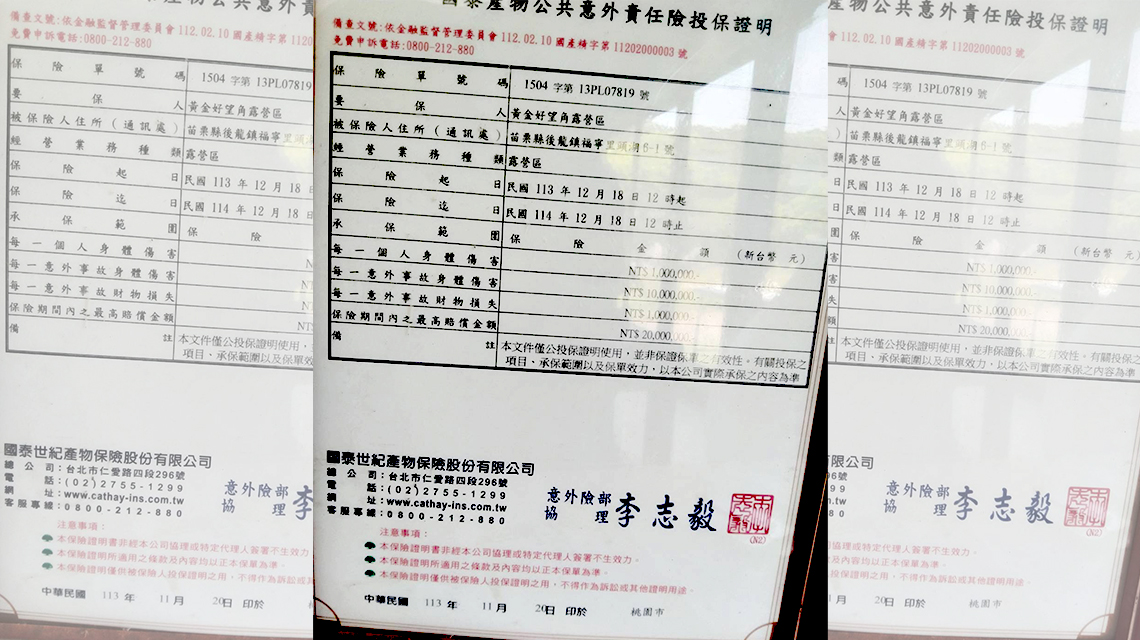 國泰產物公共意外責任險投保證明
備查文號:依金融監督管理委員會 112.02.10 國產精字第 11202000003 號
免費申訴電話:0800-212-880
保險單號碼 1504 字第 13PL07819 號
要保人 黃金好望角露營區
被保險人住所(通訊處) 苗栗縣後龍鎮福寧里頭湖6-1號
經營業務種類 露營區
保險起日 民國 113 年 12 月 18 日 12 時起
保險迄日 民國 114 年 12 月 18 日 12 時止
承保範圍 保險金額 (新台幣 元)
每一個人身體傷害 NT$ 1,000,000.-
每一意外事故身體傷害 NT$ 10,000,000.-
每一意外事故財物損失 NT$ 1,000,000.-
保險期間內之最高賠償金額 NT$ 20,000,000.-
備註 本文件僅公投保證明使用，並非保證保單之有效性。有關投保之
項目、承保範圍以及保單效力，以本公司實際承保之內容為準
國泰世紀產物保險股份有限公司
總公司:台北市仁愛路四段296號
電話:(02)2755-1299
網址:www.cathay-ins.com.tw
客服專線:0800-212-880
意外險部
協理 李志毅
(N2)
注意事項：
本保險證明書非經本公司協理或特定代理人簽署不生效力。
本保險證明所適用之條款及內容均以正本保單為準。
本保險證明僅供被保險人投保證明之用，不得作為訴訟或其他證明用途。
中華民國 113 年 11 月 20日 印於 桃園市